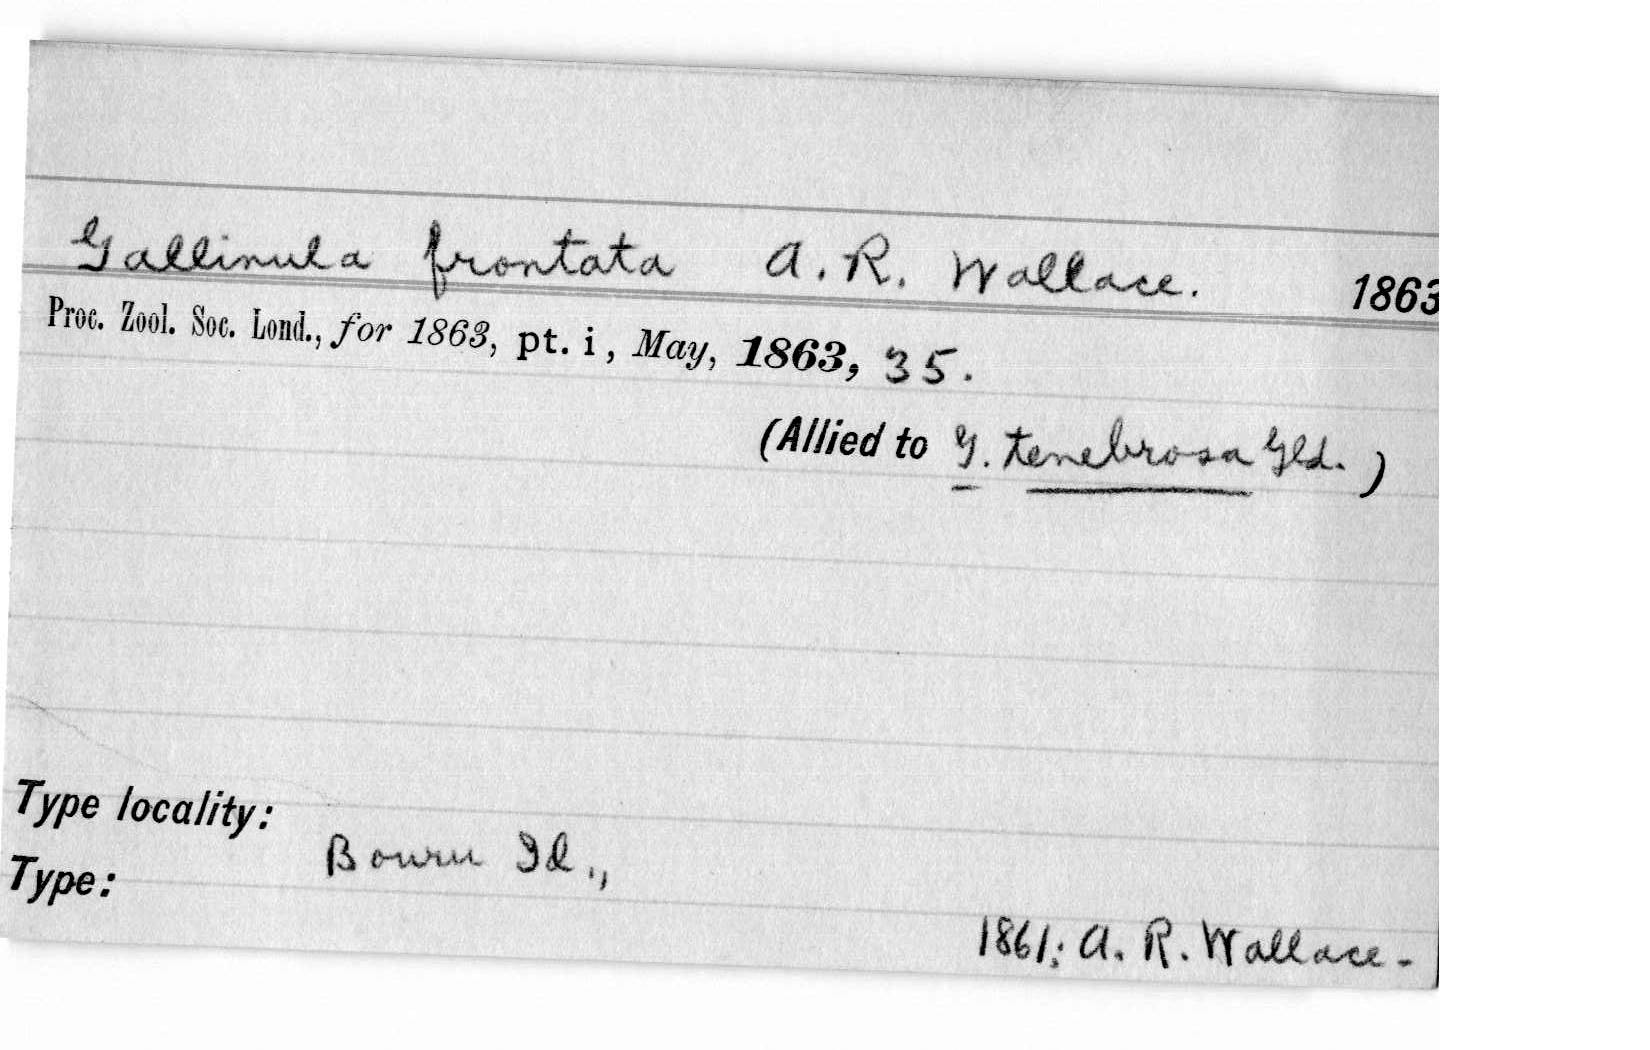 Gallinula frontata A. R. Wallace. 1863
Proc. Zool. Soc. Lond., for 1863, pt. i, May, 1863, 35.
(Allied to G. tenebrosa Gld.)
Type locality:
Bouru Id.,
Type:
1861; A. R. Wallace-